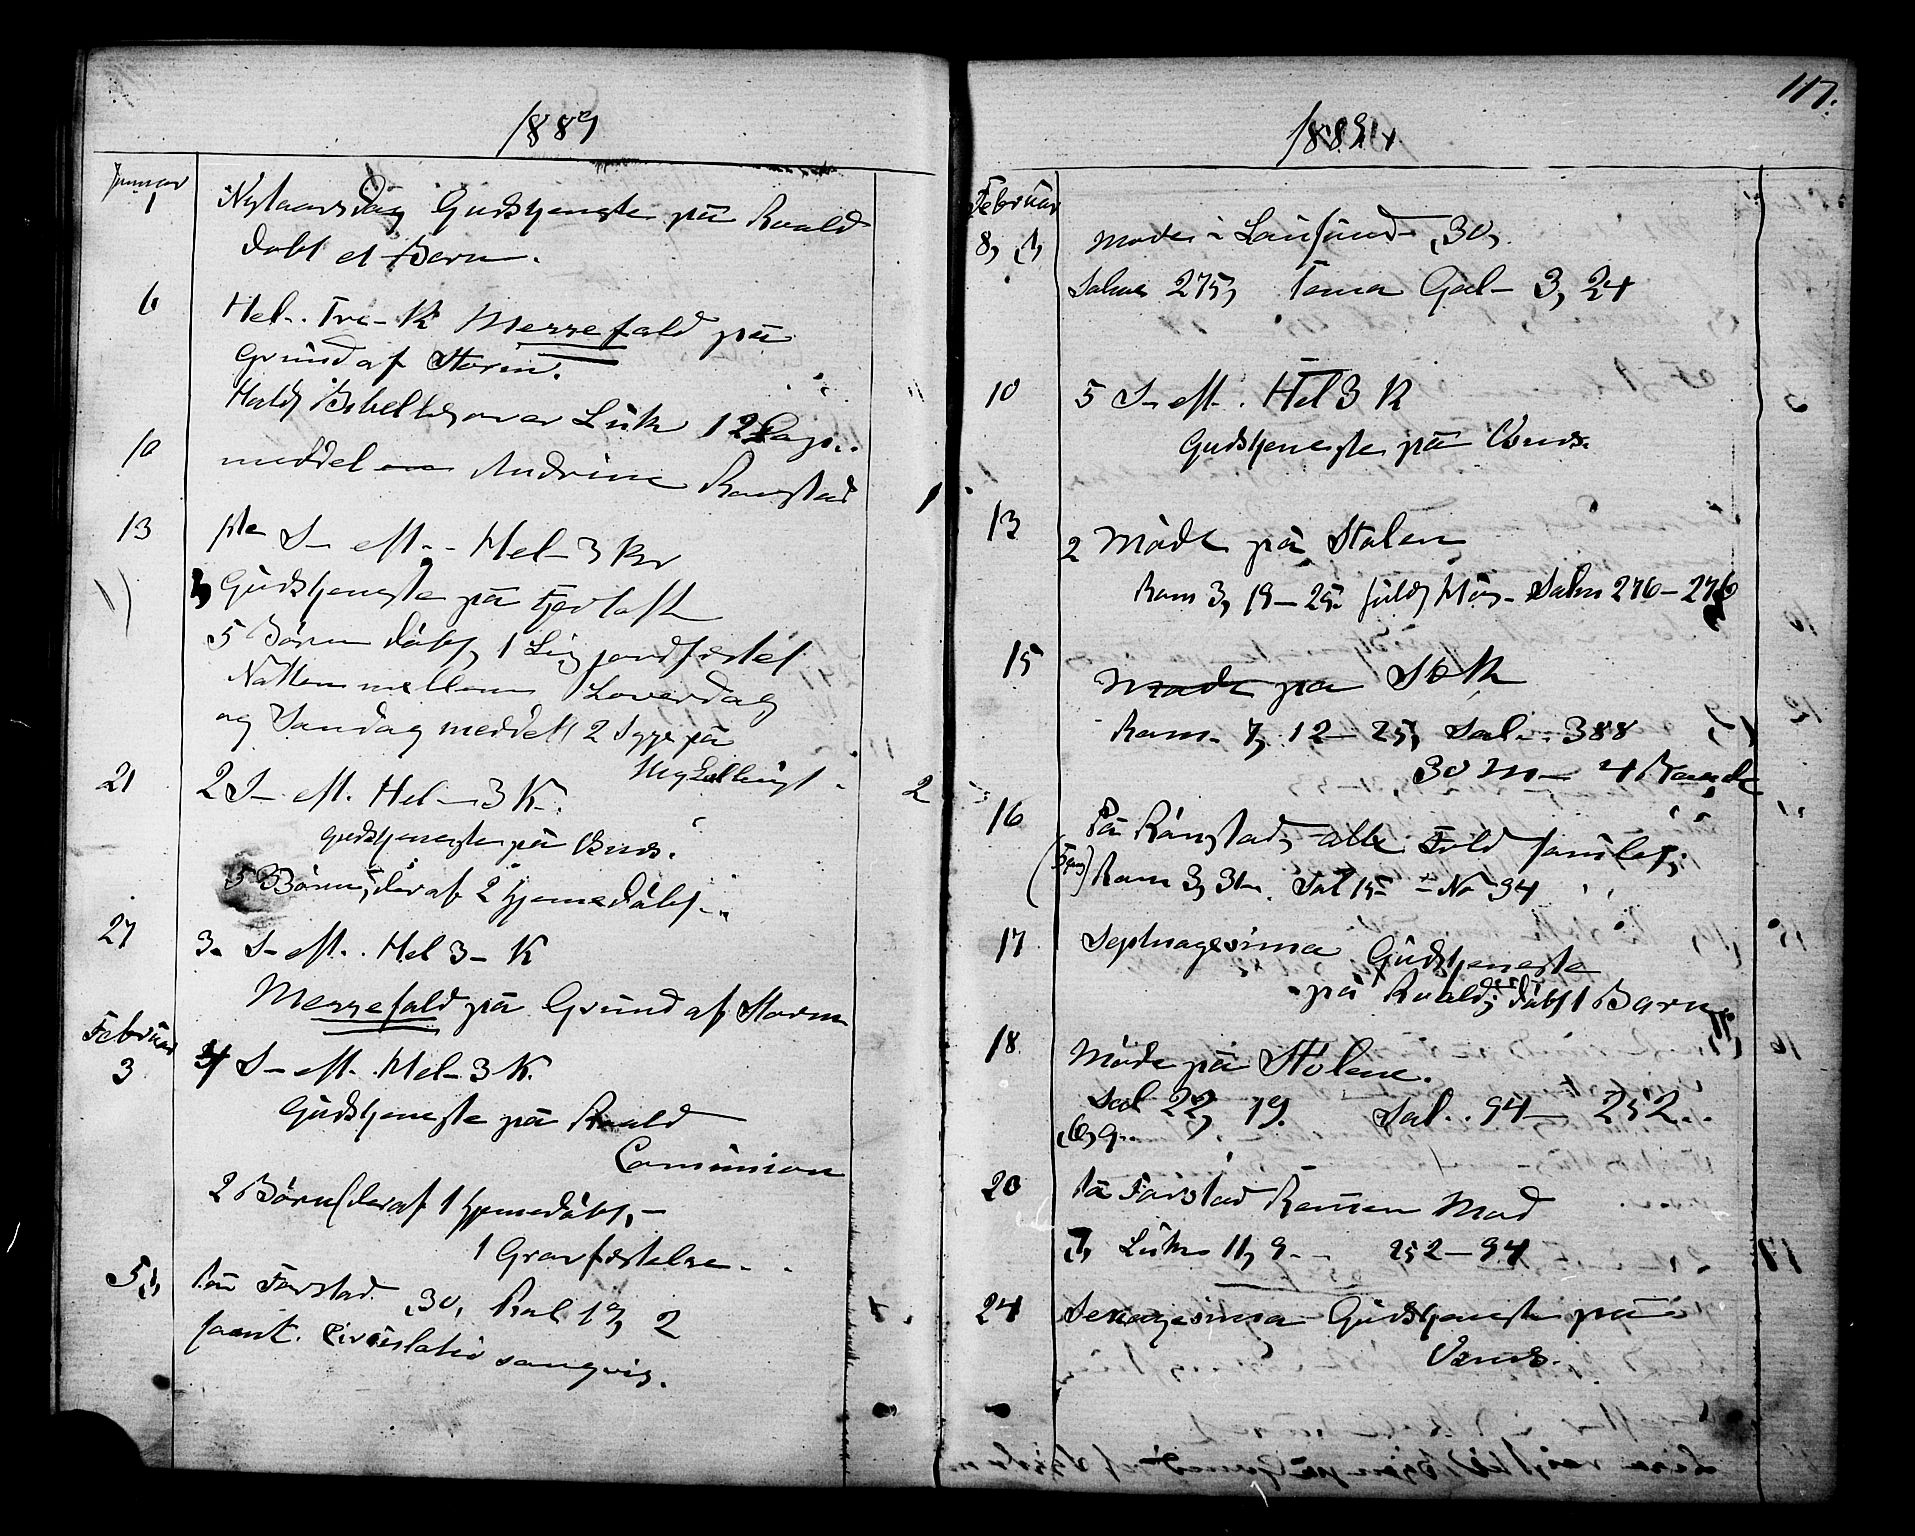 1889
Januar
1 Nytaarsdag Gudstjeneste på Roald
døbt et Barn.
6 Hel. Tre- K Messefald på
Grund af Storm.
Holdt Bibell over Luk 12
10 meddel Andrine Ranstad
13 1ste S- eft. - Hel- 3 K
Gudstjeneste på Fjørtoft
5 Børn døbt, 1 Lig jordfæstet
Natten mellem Løverdag
og Søndag meddelt 2 Syge på
21 2 S- eft. Hel- 3 K. 2
Gudstjeneste på Vens.
5 Børn, deraf 2 hjemedøbt.
27 3- S- eft. Hel 3- K
Messefald på Grund af Storm
Februar
3 4 S- eft. Hel- 3 K.
Gudstjeneste på Roald
Comunion
2 Børn (deraf 1 hjemedøbt, -
1 Gravfæstelse - .
5 på Farstad 30, 2
samt. sangvis.
117.
1889
Februar
8, Møde i 30,
Salme 275, Tema Gal- 3, 24
10 5 S- eft. Hel 3 K
Gudstjeneste på Vens.
13 2 Møde på Stølen
Rom 3, 19-25. fuldt Hus- Salm 276-276
15 Møde på
Rom. 7, 12-25, Sal. 388
30 M-
16 På Rønstad, alle Fold samlet;
Rom 3, 31- Sal 15 - No 94
17 Septuagesima Gudstjeneste
på Roald, døbt 1 Barn
18 Møde på Stølene.
Sal 22, 19. Sal.. 94- 252..
20 På Farstad Mød
Luk 11, 9 - - 252-94
24 Sexagesima Gudstjeneste på
Vens.